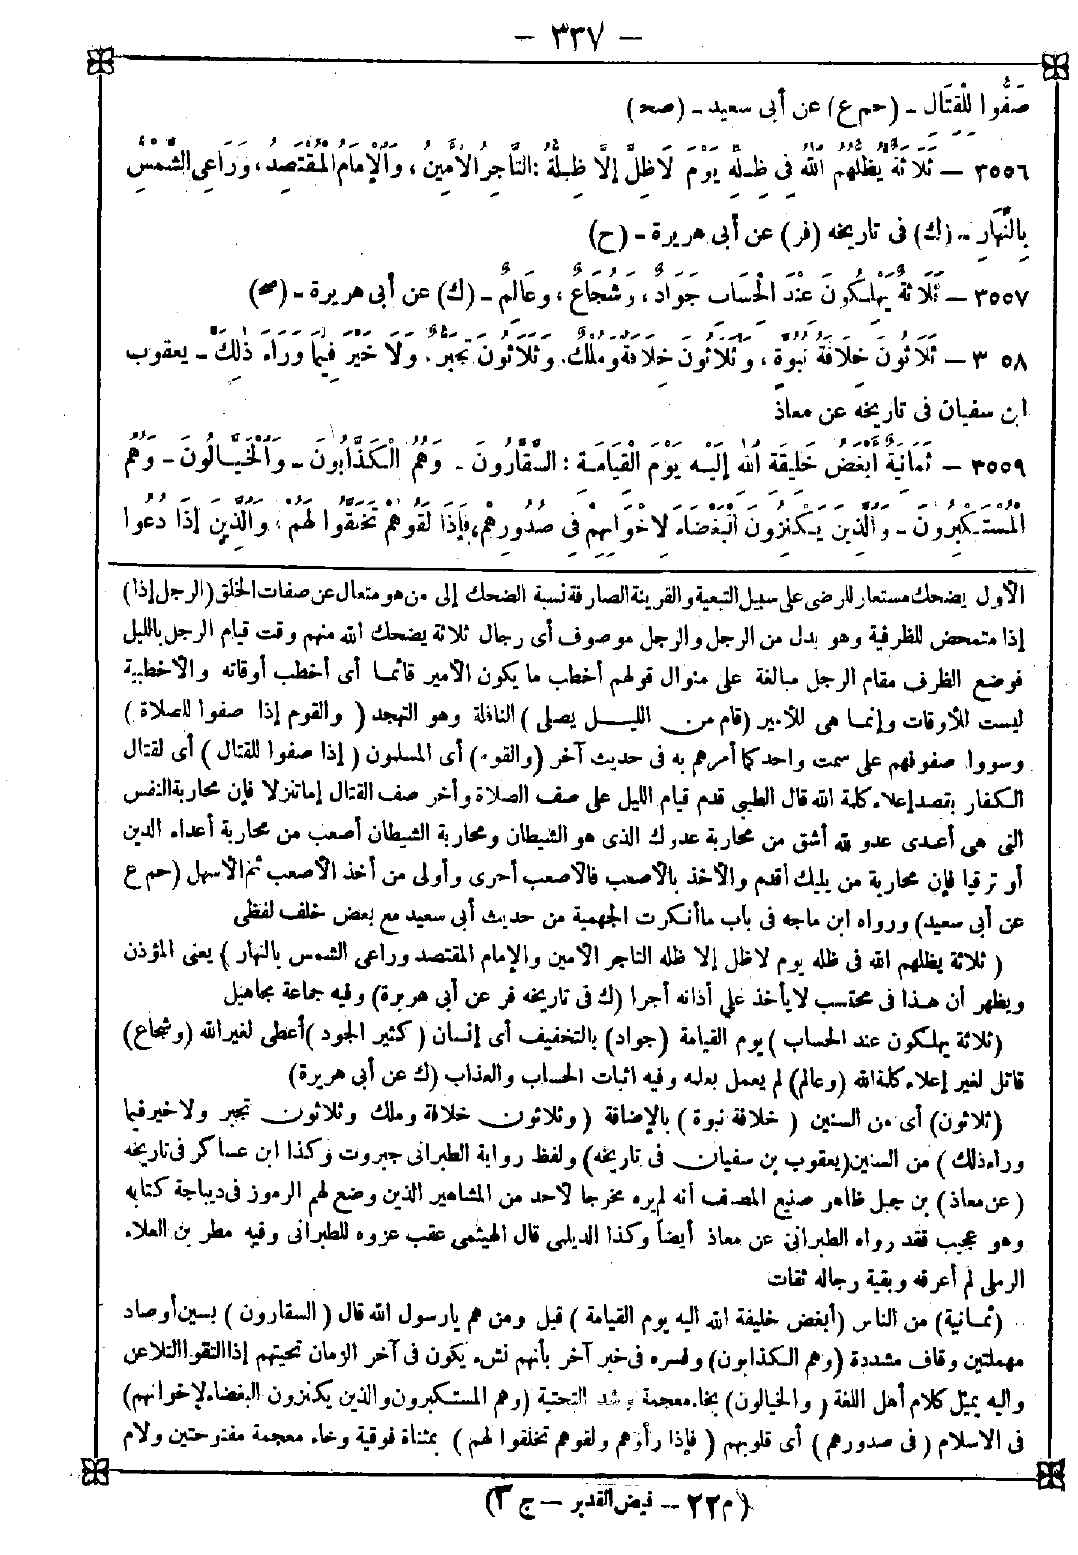 — ٣٣٧ —
صَفُّوا لِلْقِتَالِ - (حم ع) عن أبى سعيد - (صح)
٣٥٥٦ — ثَلَاثَةٌ يُظِلُّهُمُ اللّٰهُ فِى ظِلِّهِ يَوْمَ لَا ظِلَّ إِلَّا ظِلُّهُ : التَّاجِرُ الْأَمِينُ ، وَالْإِمَامُ الْمُقْتَصِدُ ، وَرَاعِى الشَّمْسِ
بِالنَّهَارِ - (ك) فى تاريخه (فر) عن أبى هريرة - (ح)
٣٥٥٧ — ثَلَاثَةٌ يَهْلِكُونَ عِنْدَ الْحِسَابِ جَوَادٌ ، وَشُجَاعٌ ، وَعَالِمٌ - (ك) عن أبى هريرة - (صح)
٣٥٥٨ — ثَلَاثُونَ خِلَافَةُ نُبُوَّةٍ ، وَثَلَاثُونَ خِلَافَةٌ وَمُلْكٌ. وَثَلَاثُونَ تَجَبُّرٌ. وَلَا خَيْرَ فِيمَا وَرَاءَ ذٰلِكَ - يعقوب
ابن سفيان فى تاريخه عن معاذ
٣٥٥٩ — ثَمَانِيَةٌ أَبْغَضُ خَلِيقَةِ اللّٰهِ إِلَيْهِ يَوْمَ الْقِيَامَةِ : السَّقَّارُونَ - وَهُمُ الْكَذَّابُونَ - وَالْخَيَّالُونَ - وَهُمُ
الْمُسْتَكْبِرُونَ - وَالَّذِينَ يَكْنِزُونَ الْبَغْضَاءَ لِإِخْوَانِهِمْ فِى صُدُورِهِمْ، فَإِذَا لَقُوهُمْ تَخَلَّقُوا لَهُمْ ، وَالَّذِينَ إِذَا دُعُوا
الأول يضحك مستعار للرضى على سبيل التبعية والقرينة الصارفة نسبة الضحك إلى من هو متعال عن صفات الخلق (الرجل إذا)
إذا متمحض للظرفية وهو بدل من الرجل والرجل موصوف أى رجال ثلاثة يضحك الله منهم وقت قيام الرجل بالليل
فوضع الظرف مقام الرجل مبالغة على منوال قولهم أخطب ما يكون الأمير قائما أى أخطب أوقاته والأخطبية
ليست للأوقات وإنما هى للأمير (قام من الليل يصلى) النافلة وهو التهجد ( والقوم إذا صفوا للصلاة )
وسووا صفوفهم على سمت واحد كما أمرهم به فى حديث آخر (والقوم) أى المسلمون ( إذا صفوا للقتال ) أى لقتال
الكفار بقصد إعلاء كلمة الله قال الطيبى قدم قيام الليل على صف الصلاة وأخر صف القتال إما تنزلا فإن محاربة النفس
التى هى أعدى عدو لله أشق من محاربة عدوك الذى هو الشيطان ومحاربة الشيطان أصعب من محاربة أعداء الدين
أو ترقيا فإن محاربة من يليك أقدم والأخذ بالأصعب فالأصعب أحرى وأولى من أخذ الأصعب ثم الأسهل (حم ع
عن أبى سعيد) ورواه ابن ماجه فى باب ما أنكرت الجهمية من حديث أبى سعيد مع بعض خلف لفظى
( ثلاثة يظلهم الله فى ظله يوم لا ظل إلا ظله التاجر الأمين والإمام المقتصد وراعى الشمس بالنهار ) يعنى المؤذن
ويظهر أن هذا فى محتسب لا يأخذ على أذانه أجرا (ك فى تاريخه فر عن أبى هريرة) وفيه جماعة مجاهيل
(ثلاثة يهلكون عند الحساب ) يوم القيامة (جواد) بالتخفيف أى إنسان ( كثير الجود ) أعطى لغير الله (وشجاع)
قاتل لغير إعلاء كلمة الله (وعالم) لم يعمل بعلمه وفيه اثبات الحساب والعذاب (ك عن أبى هريرة)
(ثلاثون) أى من السنين ( خلافة نبوة ) بالإضافة ( وثلاثون خلافة وملك وثلاثون تجبر ولا خير فيما
وراء ذلك ) من السنين (يعقوب بن سفيان فى تاريخه) ولفظ رواية الطبرانى جبروت وكذا ابن عساكر فى تاريخه
( عن معاذ ) بن جبل ظاهر صنيع المصنف أنه لم يره مخرجا لأحد من المشاهير الذين وضع لهم الرموز فى ديباجة كتابه
وهو عجيب فقد رواه الطبرانى عن معاذ أيضاً وكذا الديلمى قال الهيثمى عقب عزوه للطبرانى وفيه مطر بن العلاء
الرملى لم أعرفه وبقية رجاله ثقات
(ثمانية) من الناس (أبغض خليقة الله اليه يوم القيامة ) قيل ومن هم يارسول الله قال ( السقارون ) بسين أو صاد
مهملتين وقاف مشددة (وهم الكذابون) وفسره فى خبر آخر بأنهم نشء يكون فى آخر الزمان تحيتهم إذا التقوا التلاعن
واليه يميل كلام أهل اللغة ( والخيالون) بخاء معجمة وشد التحتية (وهم المستكبرون والذين يكنزون البغضاء لإخوانهم)
فى الاسلام ( فى صدورهم ) أى قلوبهم ( فإذا رأوهم ولقوهم تخلقوا لهم ) بمثناة فوقية وخاء معجمة مفتوحتين ولام
(م ٢٢ — فيض القدير — ج ٣)